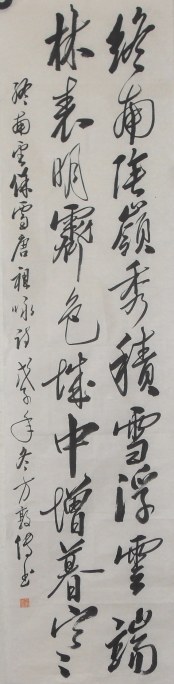 終南陰嶺秀積雪浮雲端
林表明霽色城中增暮寒
終南望餘雪唐祖咏詩戊子年冬方敦傳書